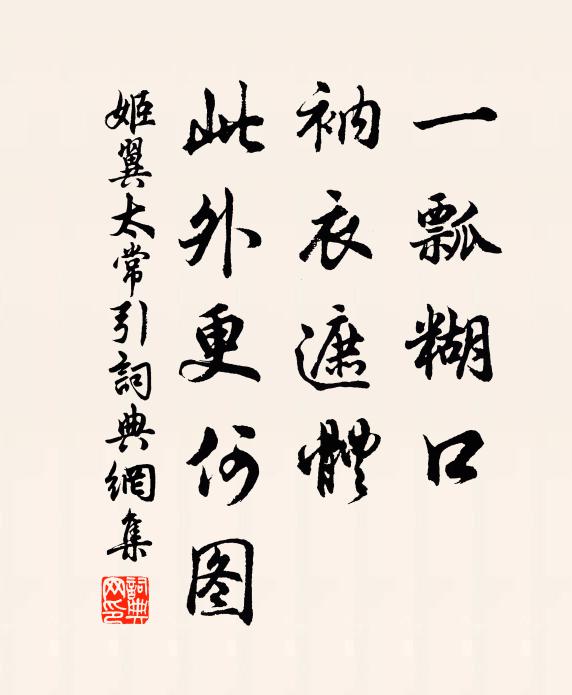 一瓢糊口
衲衣遮體
此外更何图
姬翼太常引詞典網集
詞典网印